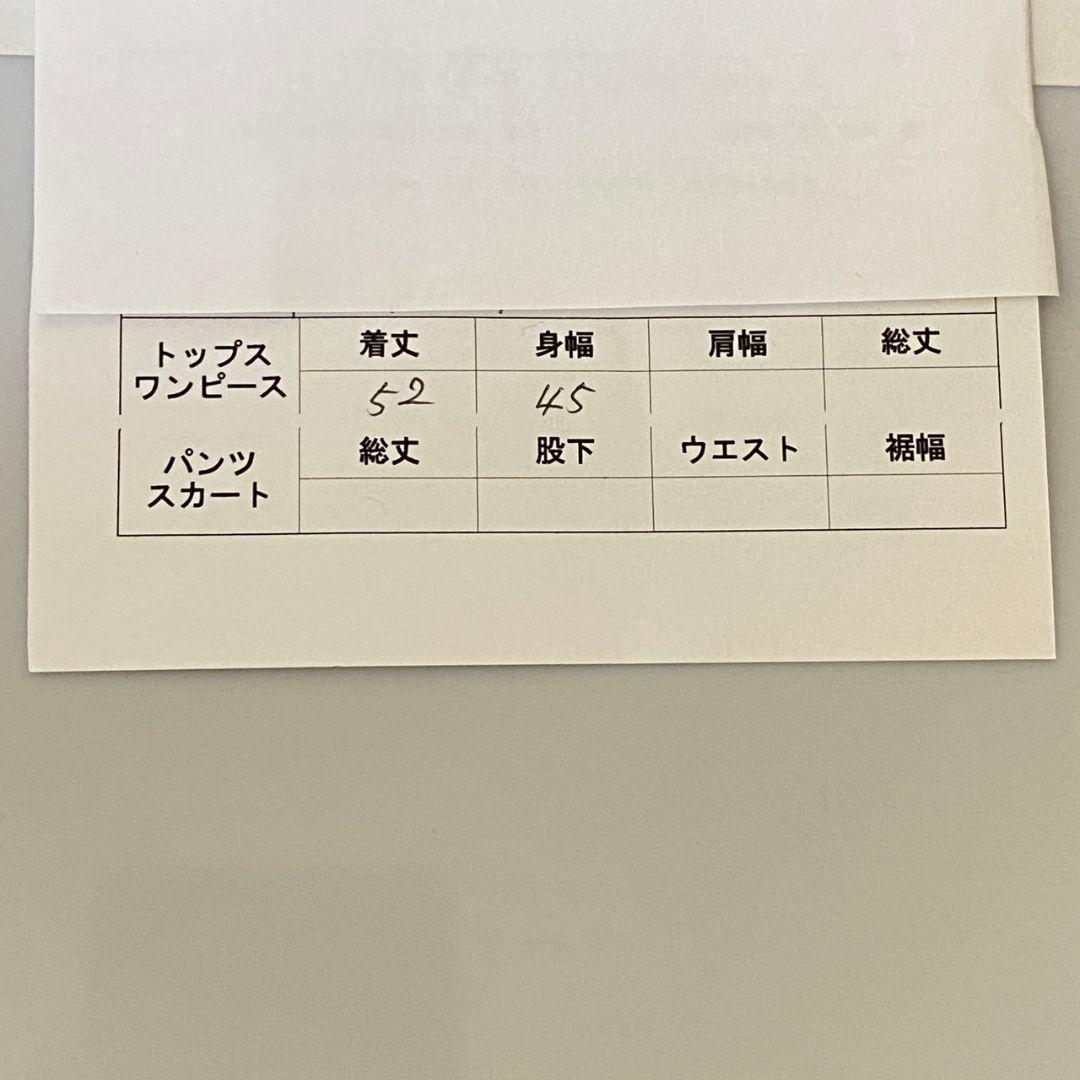 トップス
ワンピース
着丈 身幅 肩幅 総丈
52 45
パンツ
スカート
総丈 股下 ウエスト 裾幅